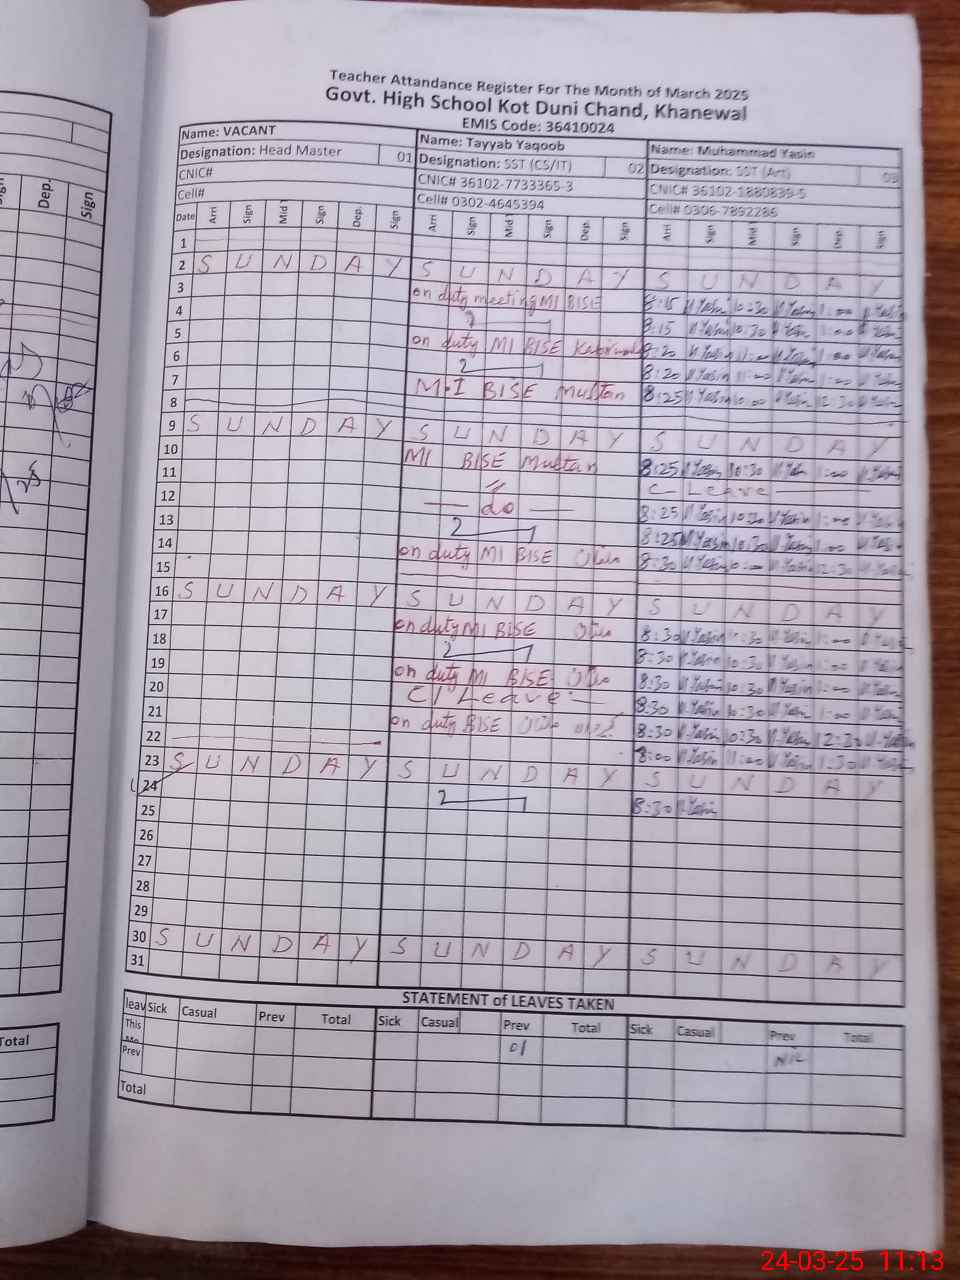 Teacher Attandance Register For The Month of March 2025
Govt. High School Kot Duni Chand, Khanewal
EMIS Code: 36410024
Name: VACANT Name: Tayyab Yaqoob Name: Muhammad Yasin
Designation: Head Master 01 Designation: SST (CS/IT) 02 Designation: SST (Art) 03
CNIC# CNIC# 36102-7733365-3 CNIC# 36102-1880839-5
Cell# Cell# 0302-4645394 Cell# 0306-7892286
Dep. Sign
Date Arri Sign Mid Sign Dep. Sign Arri Sign Mid Sign Dep. Sign Arri Sign Mid Sign Dep. Sign
1
2 S U N D A Y S U N D A Y S U N D A Y
3 on duty meeting MI BISE 8:15 Yasin 10:30 Yasin 1:00 Yasin
4 8:15 Yasin 10:30 Yasin 1:00 Yasin
5 on duty MI BISE 8:20 Yasin 11:00 Yasin 1:00 Yasin
6 8:20 Yasin 11:00 Yasin 1:00 Yasin
7 MI BISE Multan 8:25 Yasin 10:00 Yasin 12:30 Yasin
8
9 S U N D A Y S U N D A Y S U N D A Y
10 MI BISE Multan 8:25 Yasin 10:30 Yasin 1:00 Yasin
11 〃 C Leave
12 do 8:25 Yasin 10:30 Yasin 1:00 Yasin
13 8:25 Yasin 10:30 Yasin 1:00 Yasin
14 on duty MI BISE 8:30 Yasin 10:00 Yasin 12:30 Yasin
15
16 S U N D A Y S U N D A Y S U N D A Y
17 on duty MI BISE 8:30 Yasin 10:30 Yasin 1:00 Yasin
18 8:30 Yasin 10:30 Yasin 1:00 Yasin
19 on duty MI BISE 8:30 Yasin 10:30 Yasin 1:00 Yasin
20 C/ Leave 8:30 Yasin 10:30 Yasin 1:00 Yasin
21 on duty BISE 8:30 Yasin 10:30 Yasin 12:30 Yasin
22 8:00 Yasin 11:00 Yasin 1:30 Yasin
23 S U N D A Y S U N D A Y S U N D A Y
24 8:30 Yasin
25
26
27
28
29
30 S U N D A Y S U N D A Y S U N D A Y
31
STATEMENT of LEAVES TAKEN
leav Sick Casual Prev Total Sick Casual Prev Total Sick Casual Prev Total
This
Prev 01 Nil
Total
Total
24-03-25 11:13